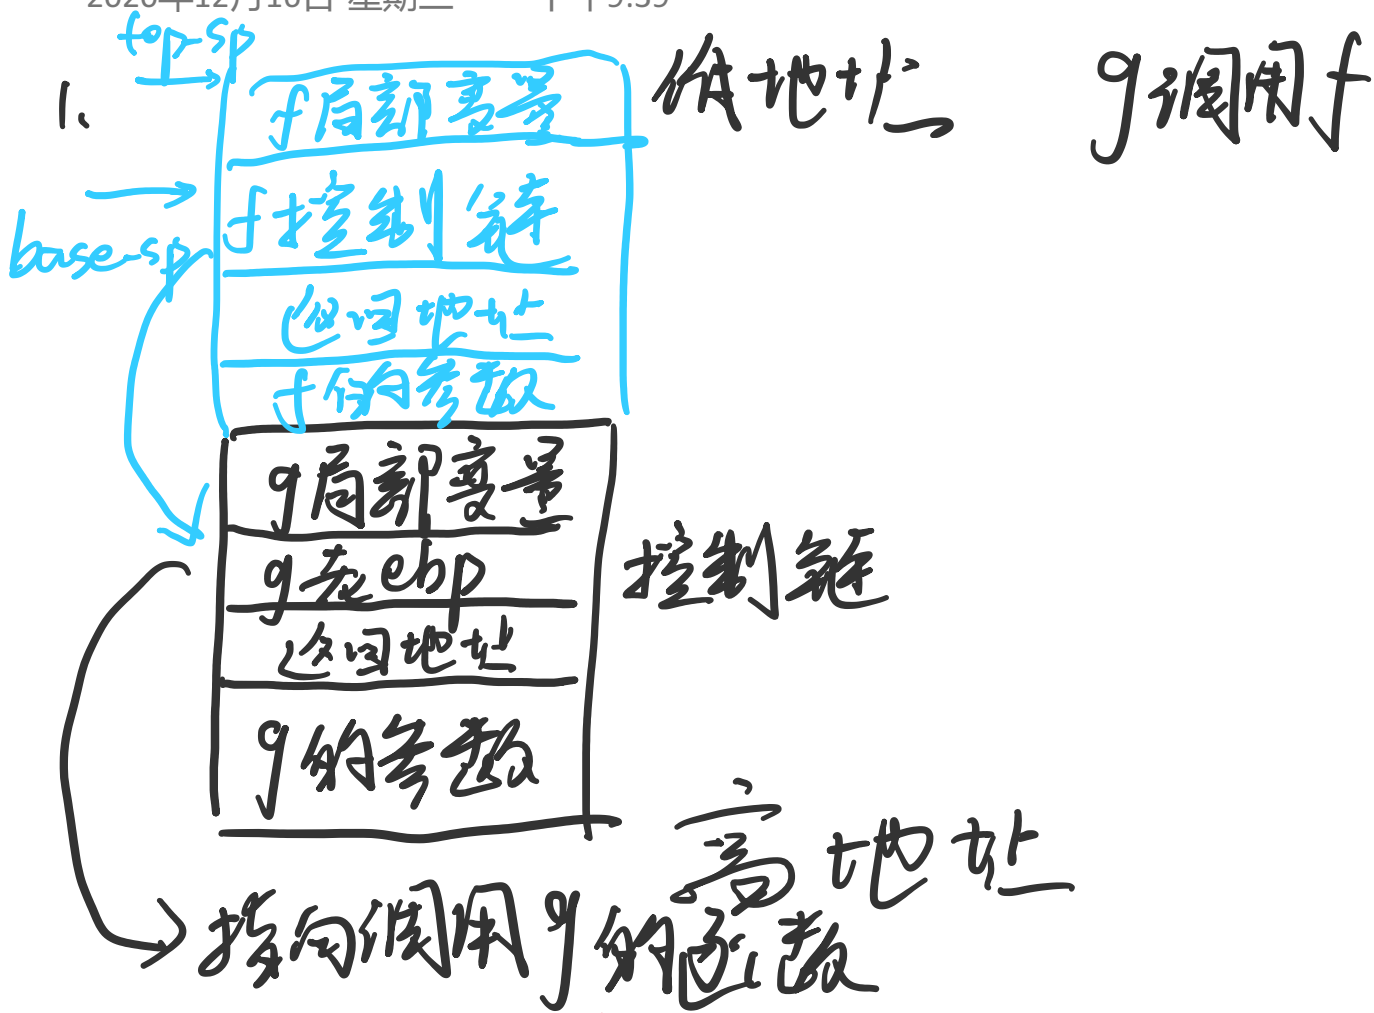 top_sp
1.
f局部变量
低地址
g调用f
base_sp
f控制链
返回地址
f的参数
g局部变量
g老ebp
控制链
返回地址
g的参数
高地址
指向调用g的函数